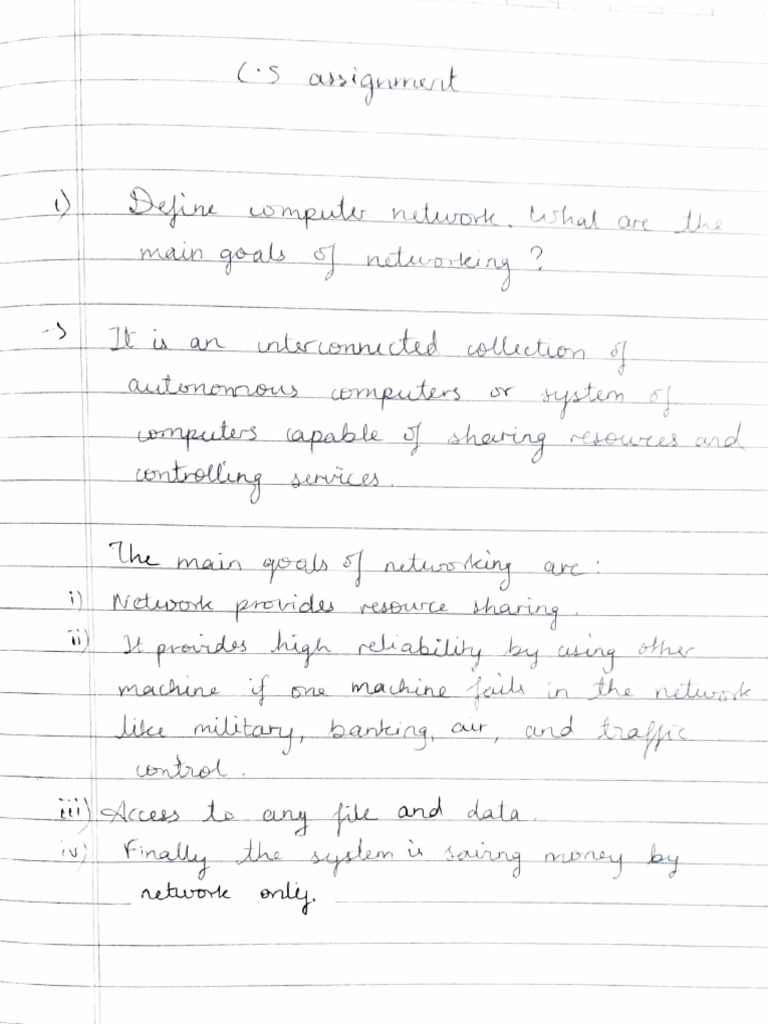 C.S assignment
1) Define computer network. What are the
main goals of networking ?
→ It is an interconnected collection of
autonomous computers or system of
computers capable of sharing resources and
controlling services.
The main goals of networking are :
i) Network provides resource sharing.
ii) It provides high reliability by using other
machine if one machine fails in the network
like military, banking, air, and traffic
control.
iii) Access to any file and data.
iv) Finally the system is saving money by
network only.